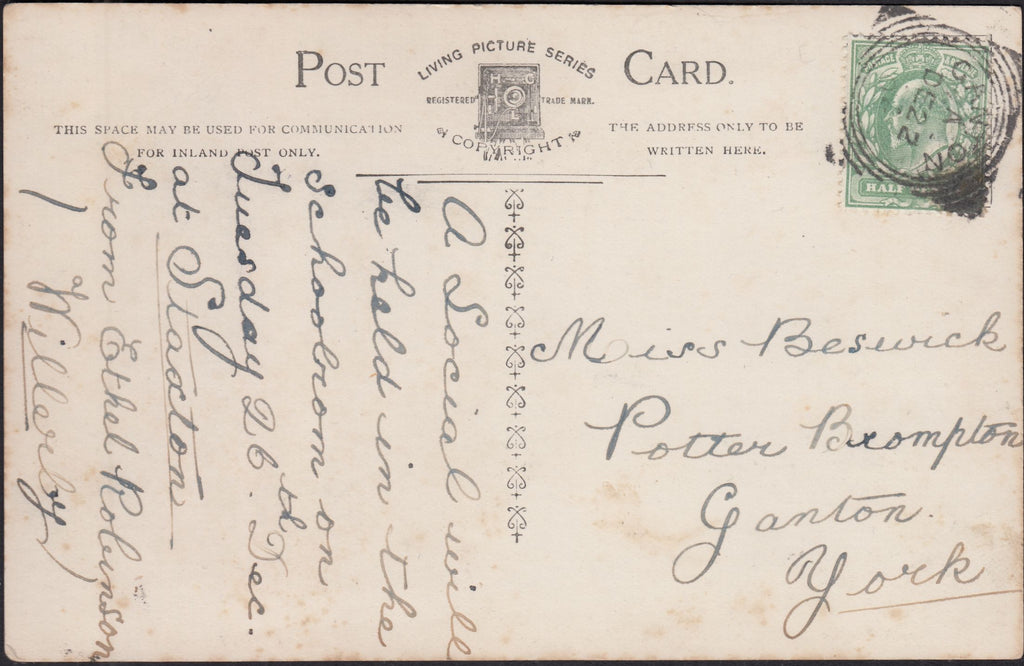 POST CARD.
LIVING PICTURE SERIES
H C
L
REGISTERED TRADE MARK.
COPYRIGHT
THIS SPACE MAY BE USED FOR COMMUNICATION
FOR INLAND POST ONLY.
THE ADDRESS ONLY TO BE
WRITTEN HERE.
HALF
A Social will
be held in the
schoolroom on
Tuesday 26.th Dec.
at Staxton
From Ethel Robinson
Willerby
Miss Beswick
Potter Brompton
Ganton.
York